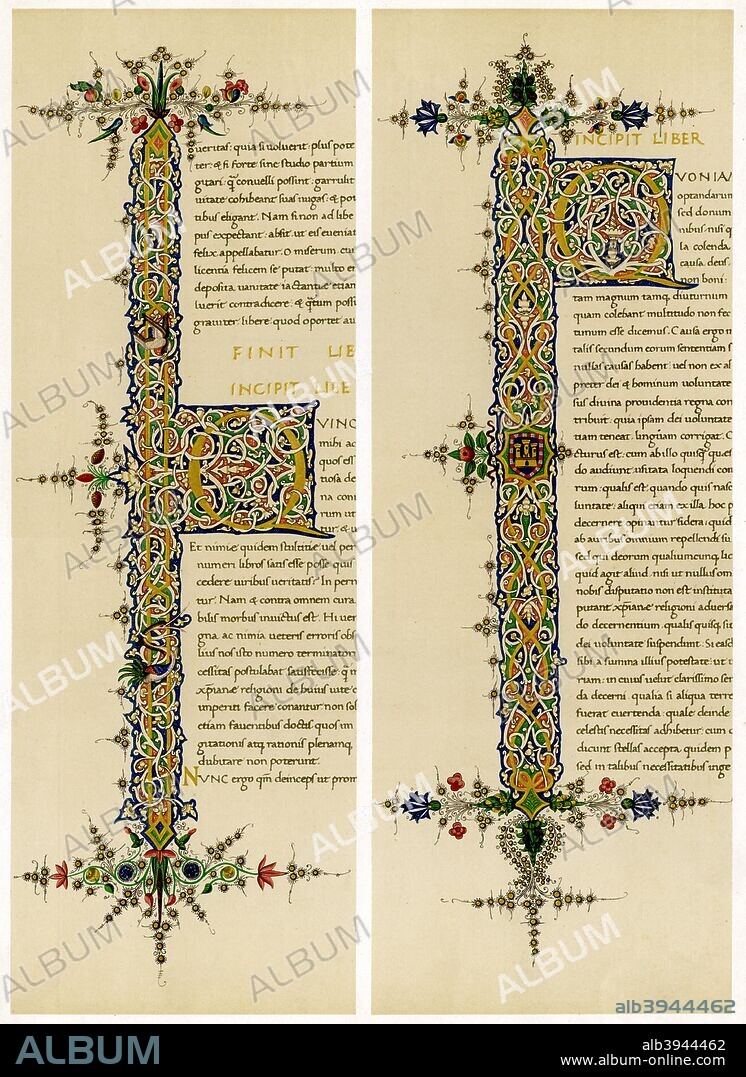 ueritas: quia si uoluerit: plus pote
ter: & si forte sine studio partium
gitari: q̃ conuelli possint: garrulit
uitate cohibeant suas nugas: & pot
tibus eligant. Nam si non ad libe
pus expectant: absit ut eis eueniat
felix appellabatur. O miserum cui
licentia felicem se putat: multo er
deposita uanitate iactantiae etiam
luerit contradicere: & q̃tum possi
grauiter libere quod oportet au
FINIT LIB
INCIPIT LIBE
VINC
mihi ac
quos ess
tiosa de
na com
rum ut
tur: & u
Et nimie quidem stultitie uel per
numeri libros satis esse posse quis
cedere uiribus ueritatis: In pern
tur. Nam & contra omnem cura
bilis morbus inuictus est. Hi uer
gna ac nimia ueteris erroris obl
lius nos isto numero terminaton
cessitas postulabat satisfecisse: q̃ n
xp̃ianae religioni de huius uite
imperiti facere conantur non sol
etiam fauentibus doctis quos im
gitationis atq; rationis plenamq;
dubitare non poterunt.
NVNC ergo qm̃ deinceps ut prom
INCIPIT LIBER
VONIAM
optandarum
sed donum
nibus nisi q
la colenda
causa deus
non boni:
tam magnum tamq; diuturnum
quam colebant multitudo non fec
timum esse dicemus: Causa ergo n
talis secundum eorum sententiam s
nullas causas habent: uel non ex al
preter dei & hominum uoluntate
sus diuina prouidentia regna con
tribuit: quia ipsam dei uoluntate
tiam teneat: linguam corrigat. C
cturus est: cum ab illo quisq; quesi
do audiunt: usitata loquendi con
rum: qualis est: quando quis nasc
luntate: aliqui etiam ex illa: hoc p
decernere opinantur sidera: quid
ab auribus omnium repellendi su
sed qui deorum qualiumcunq; lic
quid agit aliud: nisi ut nullus om
nobis disputatio non est instituta
putant: xp̃ianae religioni aduersa
do decernentium: qualis quisq; sit
dei uoluntate suspendunt. Si easd
sibi a summa illius potestate: ut i
riam: in cuius uelut clarissimo sen
da decerni: qualia si aliqua terre
fuerat euertenda: quale deinde
celestis necessitas adhibetur: cum
dicunt stellas accepta quidem p
sed in talibus necessitatibus inge
ALBUM
alb3944462
www.album-online.com